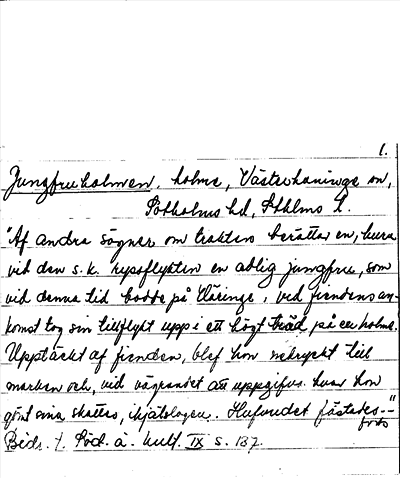 1.
Jungfruholmen, holme, Västerhaninge sn,
Sotholms hd, Sthlms l.
"Af andra sägner om trakten berättar en, huru
vid den s.k. rysseflykten en adlig jungfru, som
vid denna tid bodde på Häringe, vid fiendens an-
komst tog sin tillflykt upp i ett högt träd på en holme.
Upptäckt af fienden, blef hon nedryckt till
marken och, vid vägrandet att uppgifva hvar hon
gömt sina skatter, ihjälslagen. Hufvudet fästades--"
Bidr. t. Söd. ä. kult. IX s. 137.